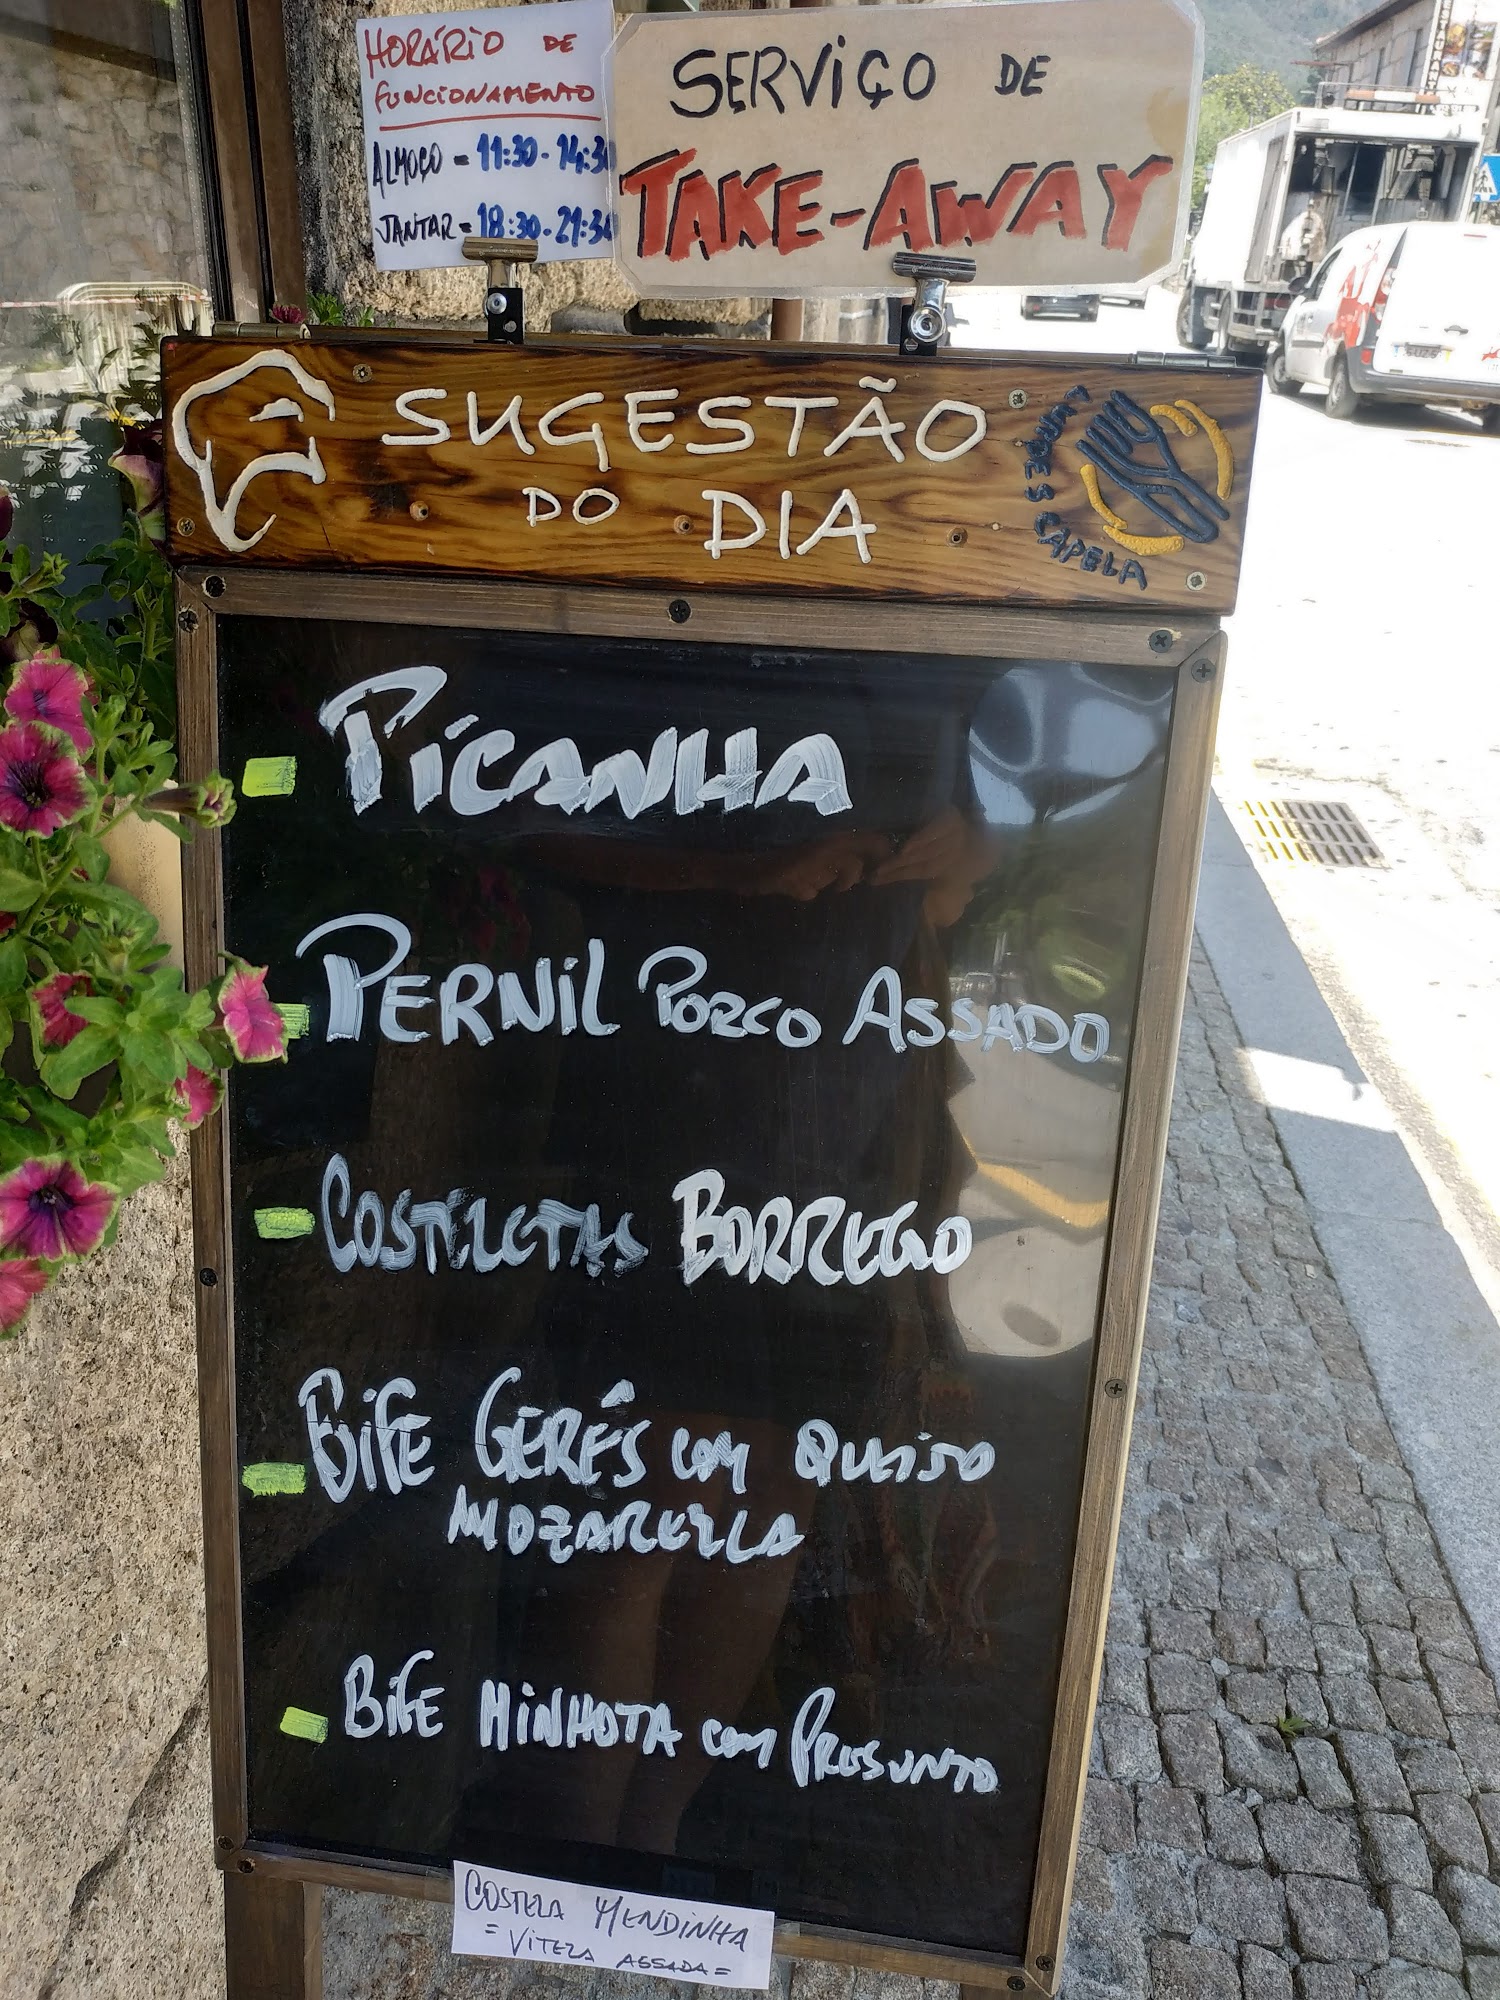 HORÁRIO DE
FUNCIONAMENTO
ALMOÇO = 11:30 - 14:30
JANTAR = 18:30 - 21:30
SERVIÇO DE
TAKE-AWAY
SUGESTÃO
DO DIA
CAPELA
PICANHA
PERNIL PORCO ASSADO
COSTELETAS BORREGO
BIFE GERÉS COM QUEIJO
MOZARELLA
BIFE MINHOTA COM PRESUNTO
COSTELA MENDINHA
= VITELA ASSADA =